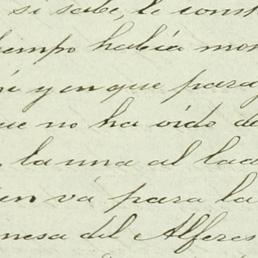 si sabe, le const
tiempo había mon
ní y en que para
que no ha oido de
la una al lad
en vá para la
mesa del Alferes